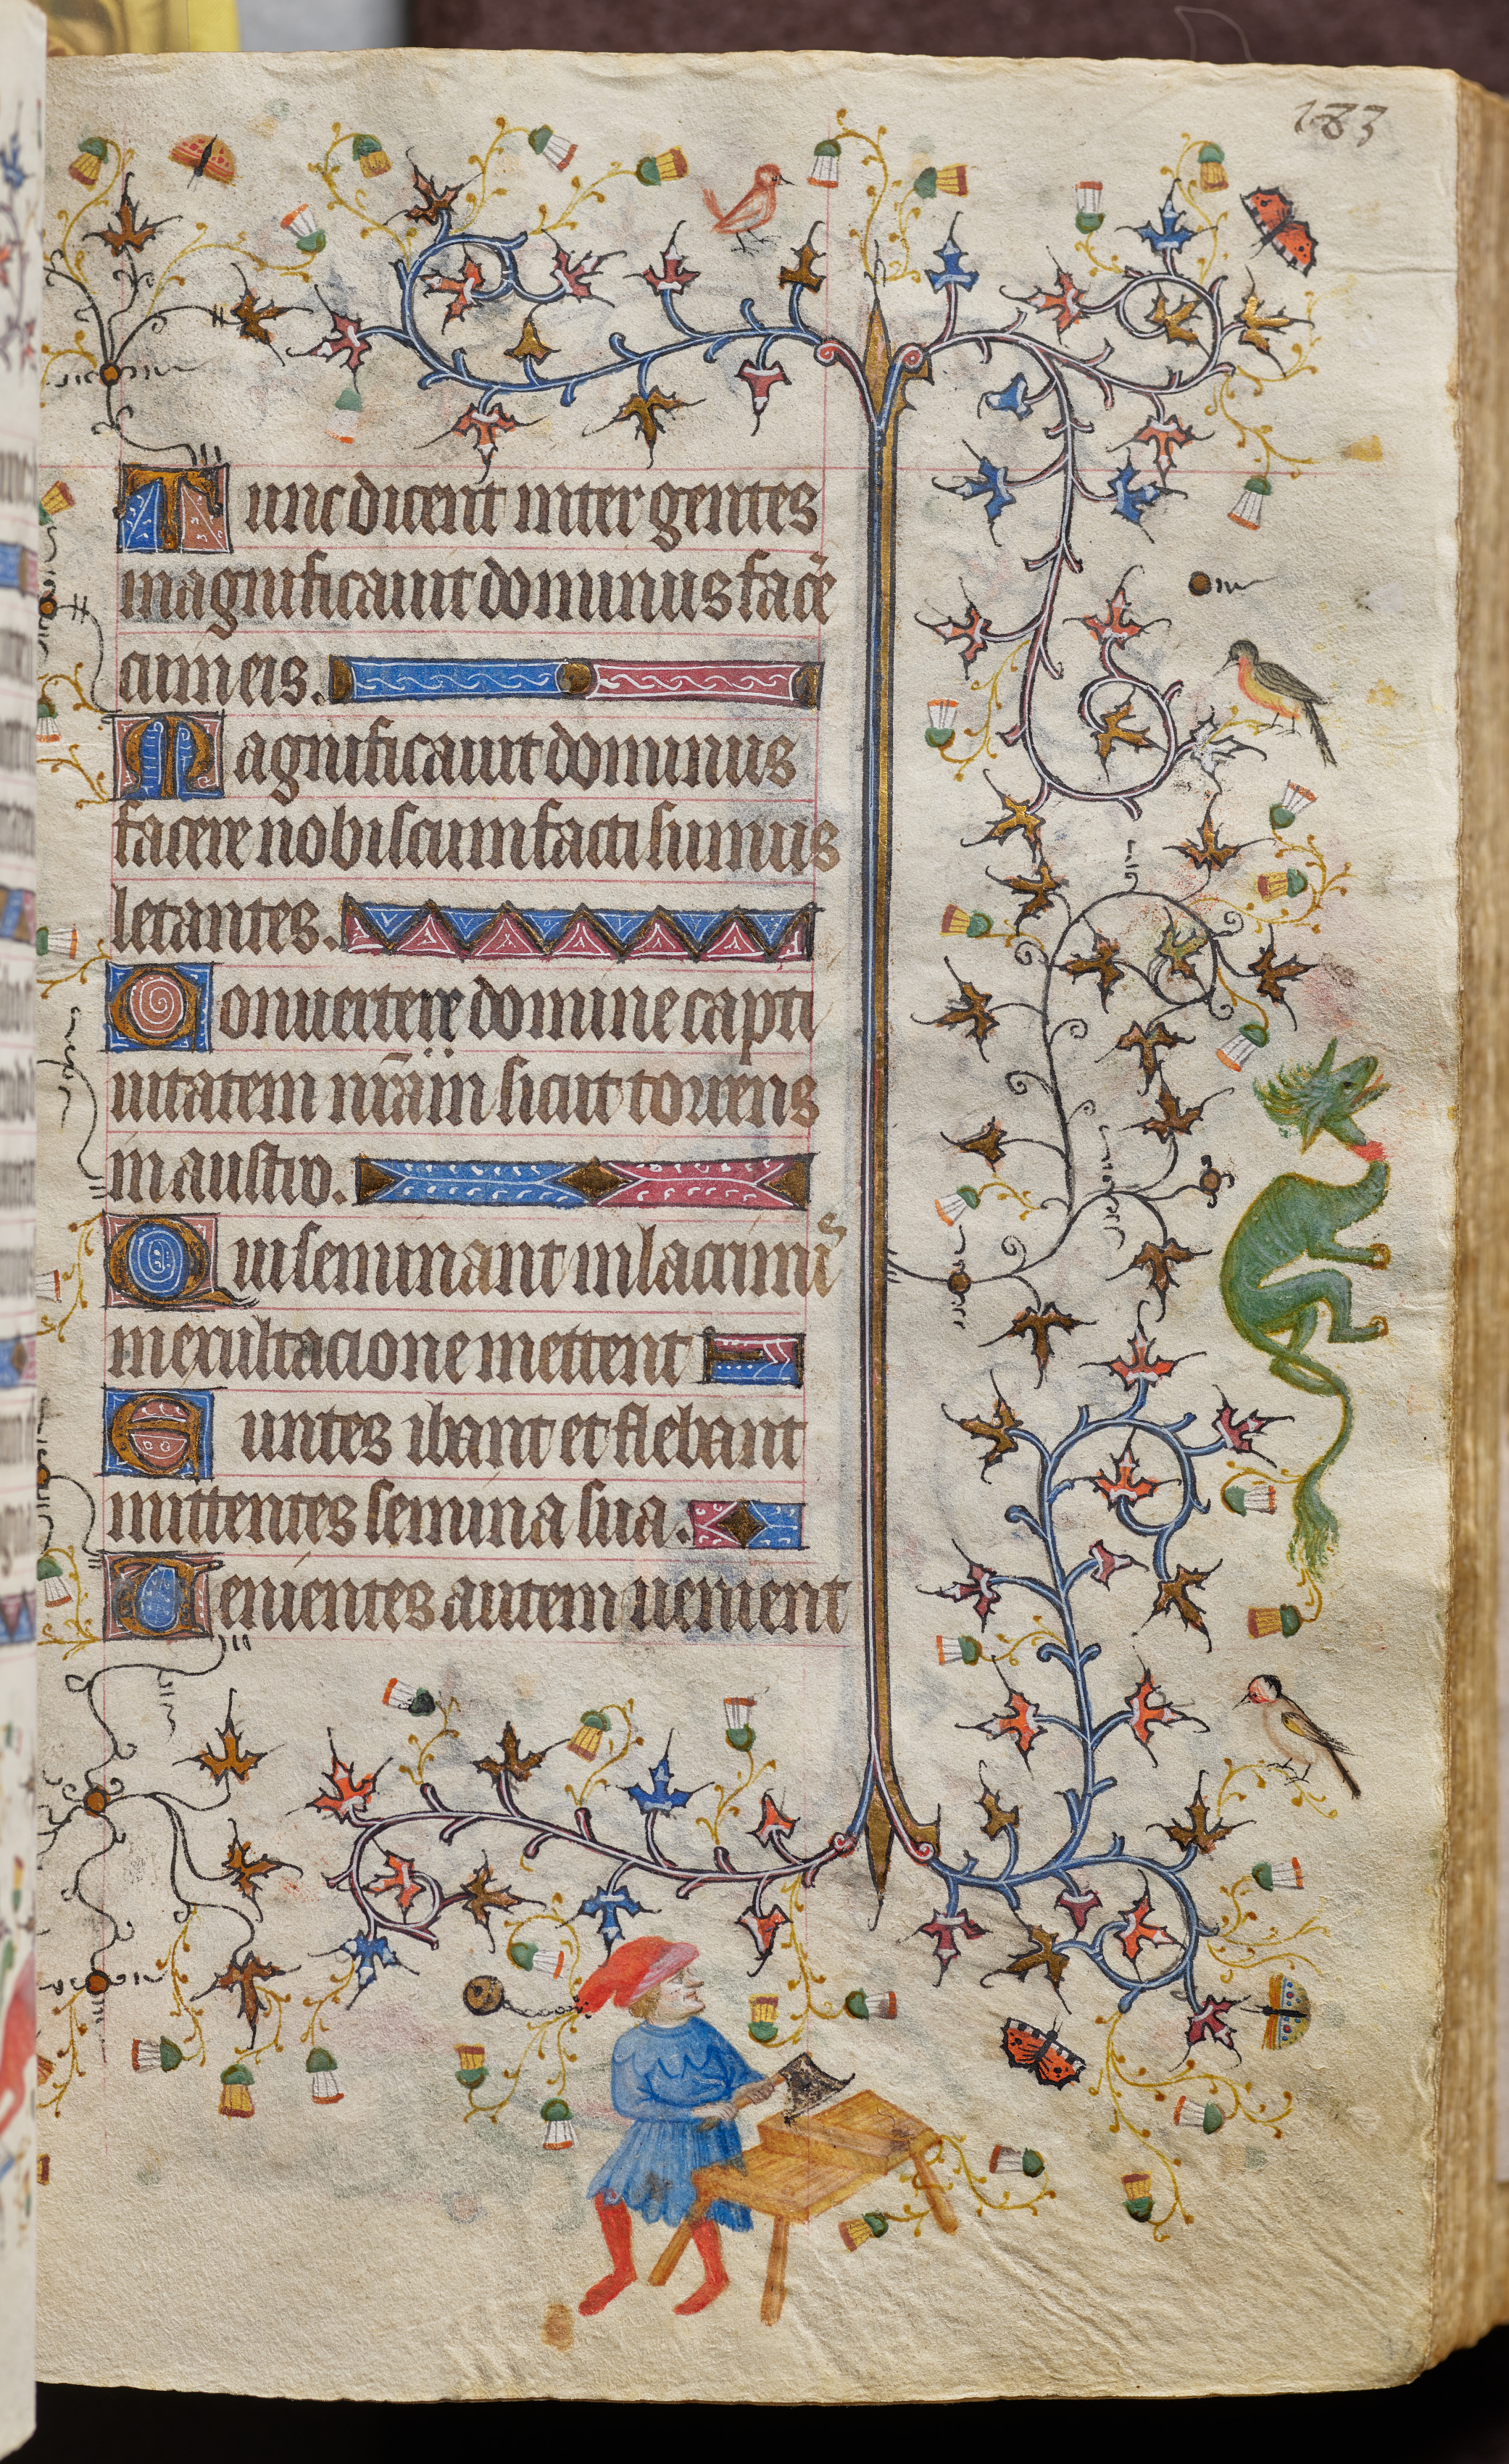 183
Tunc dicent inter gentes
magnificauit dominus facẽ
cum eis.
Magnificauit dominus
facere nobiscum facti sumus
letantes.
Conuertere domine capti
uitatem nr̃am sicut torrens
in austro.
Qui seminant in lacrimis
in exultacione mettent
Euntes ibant et flebant
mittentes semina sua.
Uenientes autem uenient